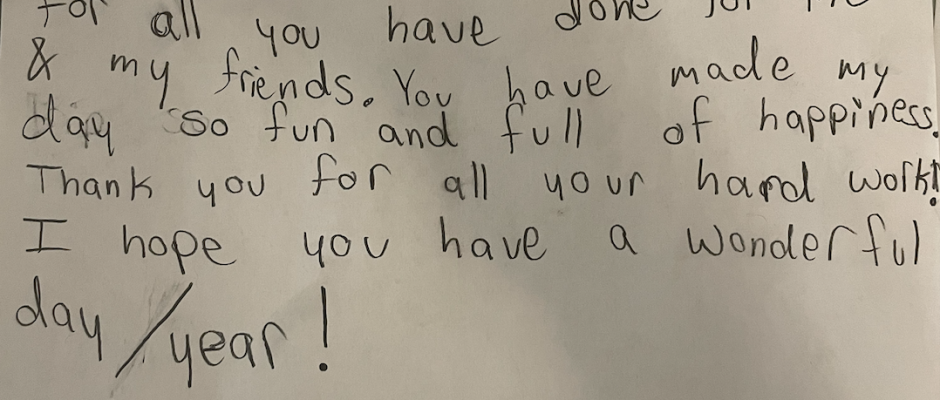 For all you have done for me
& my friends. You have made my
day so fun and full of happiness.
Thank you for all your hard work!
I hope you have a wonderful
day/year!